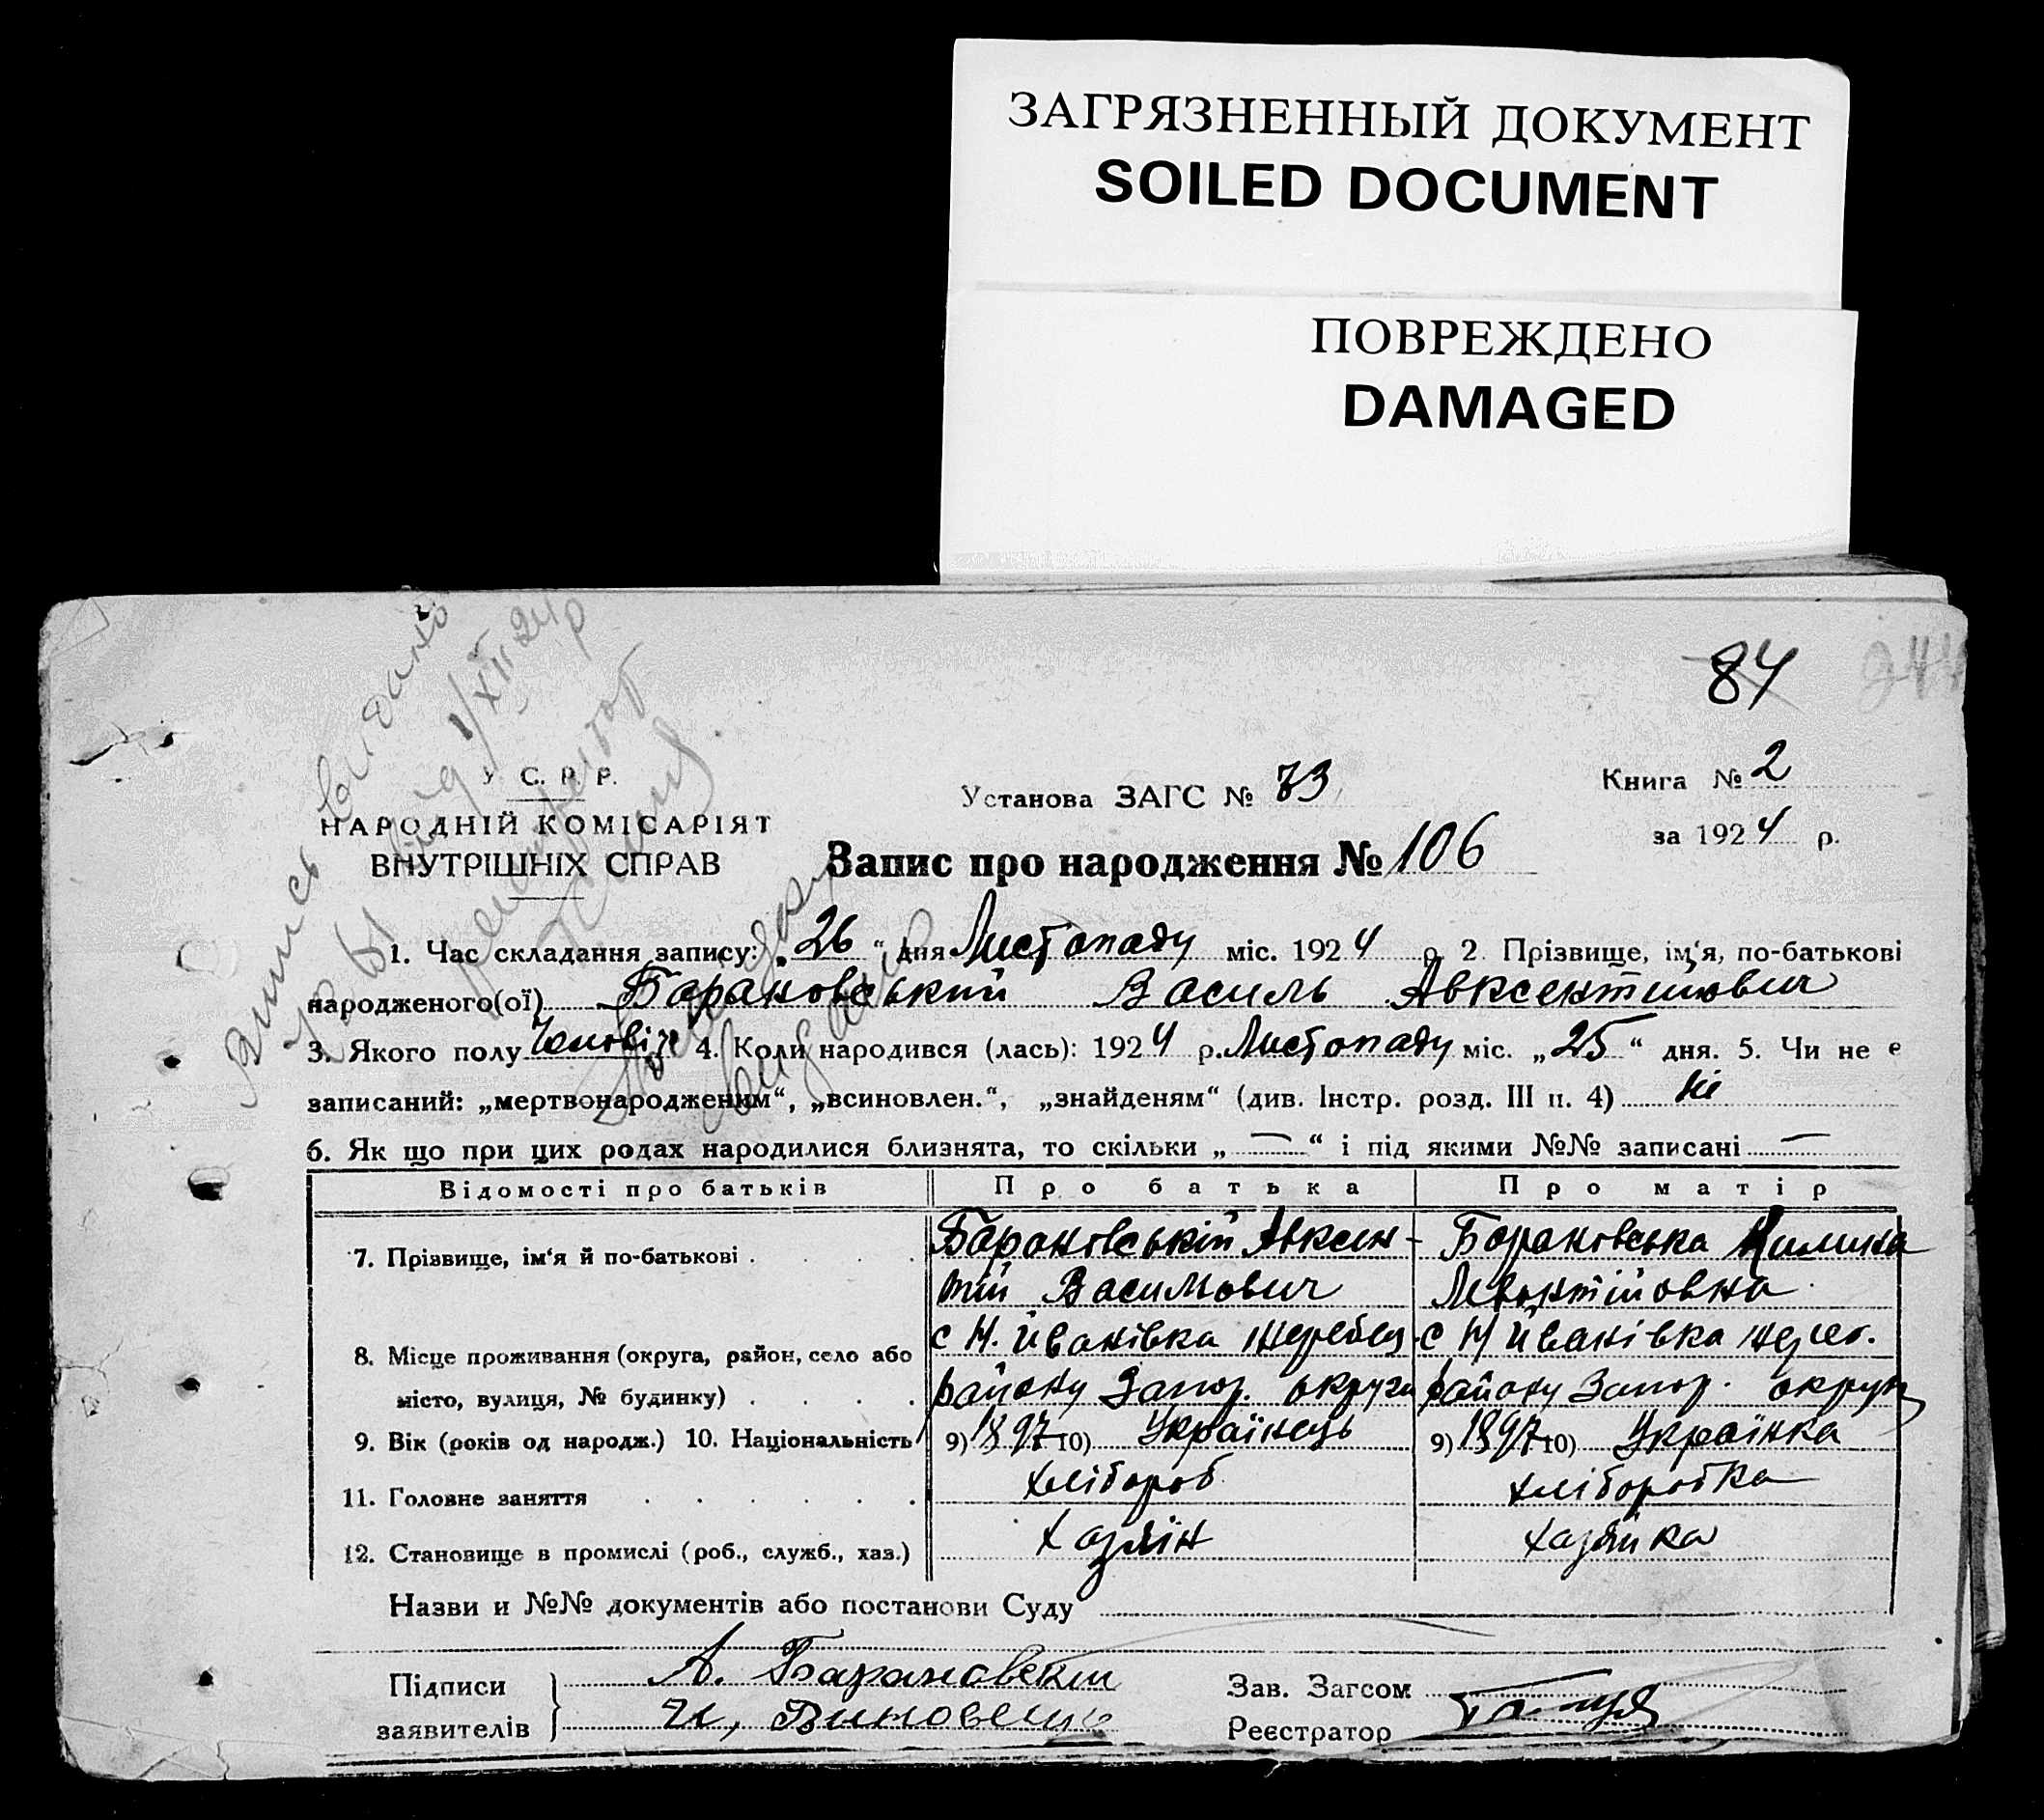 ЗАГРЯЗНЕННЫЙ ДОКУМЕНТ
SOILED DOCUMENT
ПОВРЕЖДЕНО
DAMAGED
84
244
Книга № 2
за 1924 р.
У С. Р. Р.
НАРОДНІЙ КОМІСАРІЯТ
ВНУТРІШНІХ СПРАВ
Установа ЗАГС № 73
Запис про народження № 106
1. Час складання запису: „26“ дня Листопаду міс. 1924 р. 2. Прізвище, ім‘я, по-батькові
народженого(ої) Барановський Василь Авксентийович
3. Якого полу 4. Коли народився (лась): 1924 р. Листопаду міс. „25“ дня. 5. Чи не є
записаний: „мертвонародженим“, „всиновлен.“, „знайденям“ (див. Інстр. розд. III п. 4) Ні
6. Як що при цих родах народилися близнята, то скільки „—“ і під якими №№ записані —
Відомості про батьків Про батька Про матір
7. Прізвище, ім‘я й по-батькові Барановській Авксен- Барановська Килина
тій Васильович Левонтійовна
8. Місце проживання (округа, район, село або с Н. Йванівка Жеребец. с Н Йванівка Жереб.
місто, вулиця, № будинку) району Запор. округи району Запор. округи
9. Вік (років од народж.) 10. Національність 9) 1897 10) Українець 9) 1897 10) Українка
11. Головне заняття хлібороб хліборобка
12. Становище в промислі (роб., служб., хаз.) хазяїн хазяйка
Назви и №№ документів або постанови Суду
Підписи А. Барановский
заявителів
Зав. Загсом
Реєстратор
запись видано
від 1/XII 24 р